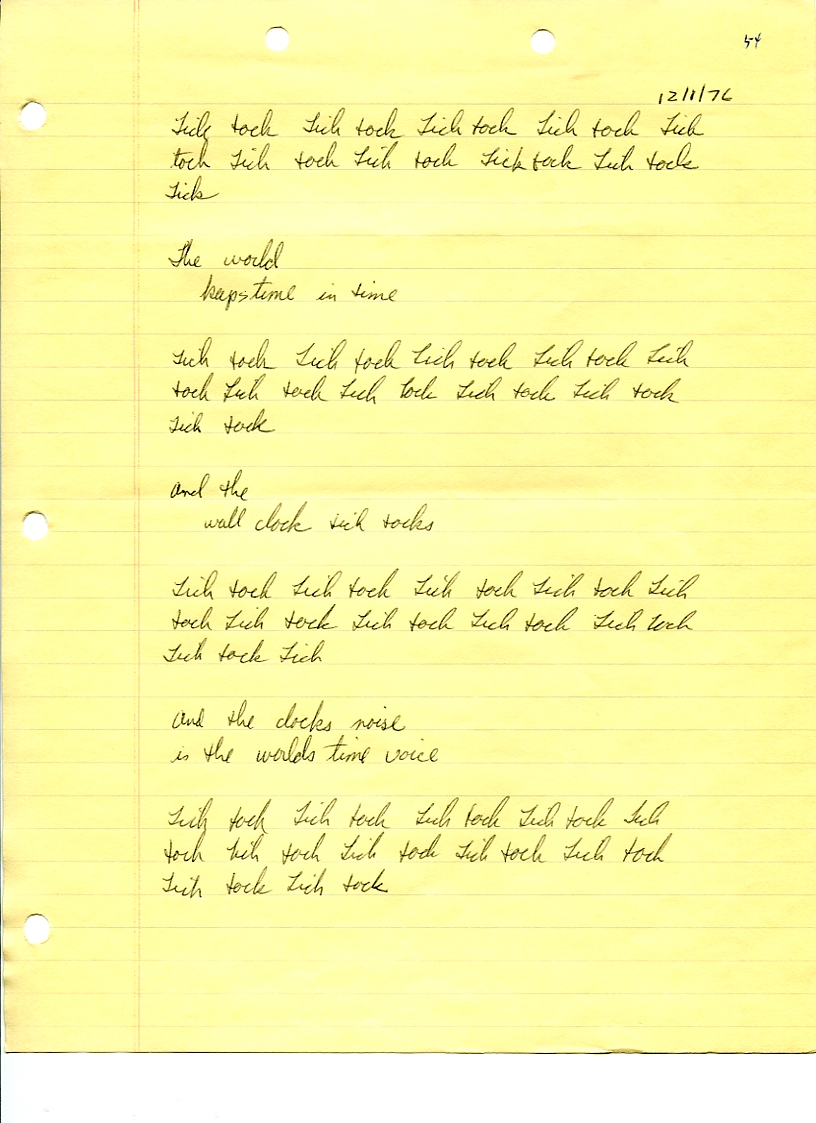 54
12/1/76
Tick tock Tick tock Tick tock Tick tock Tick
tock Tick tock Tick tock Tick tock Tick tock
Tick
The world
keeps time in time
Tick tock Tick tock Tick tock Tick tock Tick
tock Tick tock Tick tock Tick tock Tick tock
Tick tock
and the
wall clock tick tocks
Tick tock Tick tock Tick tock Tick tock Tick
tock Tick tock Tick tock Tick tock Tick tock
Tick tock Tick
and the clocks noise
is the worlds time voice
Tick tock Tick tock Tick tock Tick tock Tick
tock tick tock Tick tock Tick tock Tick tock
Tick tock Tick tock